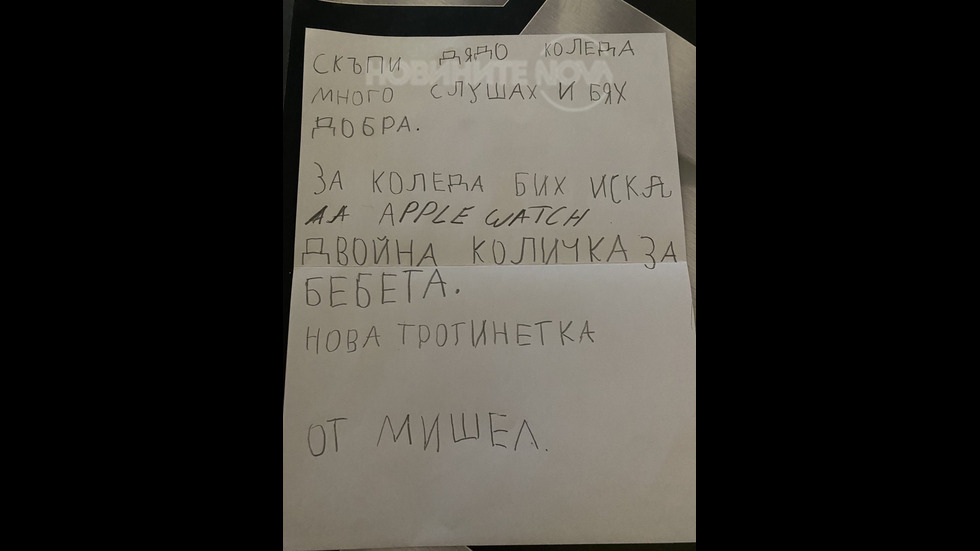 СКЪПИ ДЯДО КОЛЕДА
НОВИНИТЕ NOVA
МНОГО СЛУШАХ И БЯХ
ДОБРА.
ЗА КОЛЕДА БИХ ИСКА
ЛА APPLE WATCH
ДВОЙНА КОЛИЧКА ЗА
БЕБЕТА.
НОВА ТРОТИНЕТКА
ОТ МИШЕЛ.